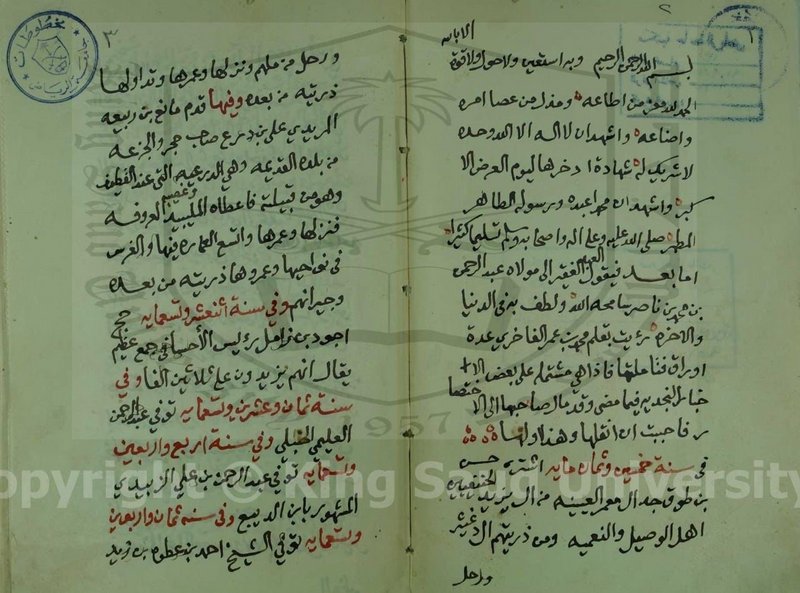 الا بالله
بسم الله الرحمن الرحيم وبه استعين ولا حول ولا قوة
الحمد لله معز من اطاعه ومذل من عصا امره
واضاعه واشهد ان لا اله الا الله وحده
لا شريك له شهادة ادخرها ليوم العرض الا
كبر واشهد ان محمدا عبده ورسوله الطاهر
المطهر صلى الله عليه وعلى آله واصحابه وسلم تسليما كثيرا
اما بعد فيقول العبد الفقير الى مولاه عبد الرحمن
بن محمد بن ناصر سامحه الله ولطف به في الدنيا
والاخره رئيت بقلم محمد بن عمر الفاخري عدة
اوراق فتاملتها فاذا هي مشتمله على بعض الا
خبار النجديه فيما مضى وقد مال صاحبها الى الا ختصا
ر فاحببت ان انقلها وهذا اولها
في سنة خمسين وثمان مايه اشترى حسن
بن طوق جد ال معمر العيينه من ال يزيد الحنفيين
اهل الوصيل والنعميه ومن ذريتهم ال دغيثر
ورحل
٣
ورحل من ملهم ونزلها وعمرها وتداولها
ذريته من بعده وفيها قدم مانع بن ربيعه
المريدي على بن درع صاحب حجر والجزعه
من بلده القديمه وهي الدرعيه التي عند القطيف
وهو من قبيلته فاعطاه المليبيد وغصيبه المعروفه
فنزلها وعمرها واتسع العماره فيها والغرس
في نواحيها وعمروها ذريته من بعده
وجيرانهم وفي سنة اثنعشر وتسعمايه حج
اجود بن زامل رئيس الأحسا في جمع عظيم
يقال انهم يزيدون على ثلاثين الفا وفي
سنة ثمان وعشرين وتسعمايه توفي عبد الرحمن
العليمي الحنبلي وفي سنة اربع واربعين
وتسعمايه توفي عبد الرحمن بن علي الزبيدي
المشهور بابن الديبع وفي سنه ثمان واربعين
وتسعمايه توفي الشيخ احمد بن عطوه بن زيد
1957
opyright © King Saud University